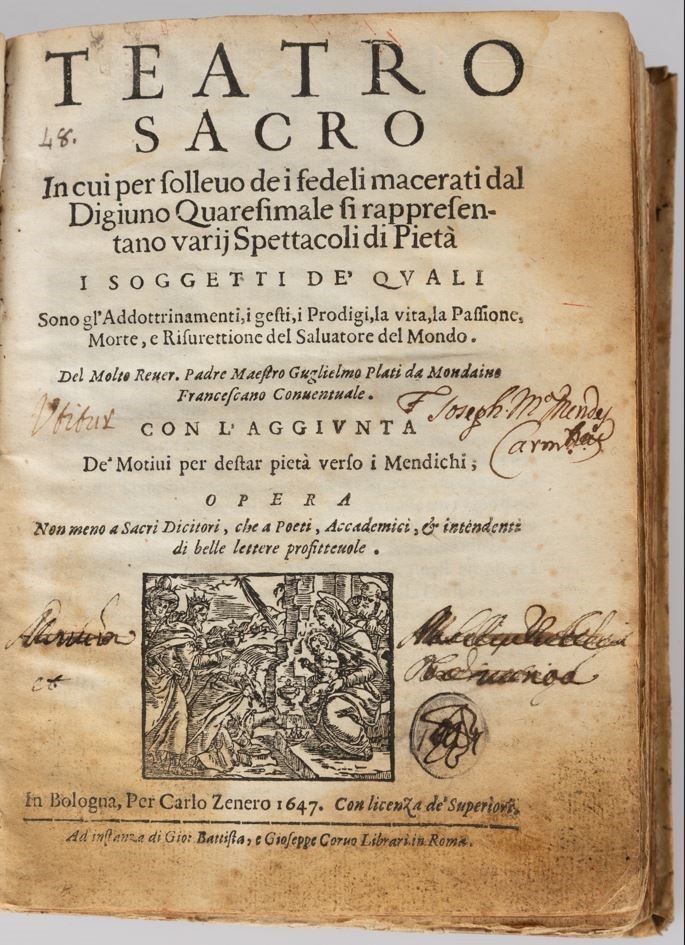 TEATRO
SACRO
48.
In cui per ſolleuo de i fedeli macerati dal
Digiuno Quareſimale ſi rappreſen-
tano varij Spettacoli di Pietà
I SOGGETTI DE' QVALI
Sono gl'Addottrinamenti, i geſti, i Prodigi, la vita, la Paſſione,
Morte, e Riſurettione del Saluatore del Mondo.
Del Molto Reuer. Padre Maeſtro Guglielmo Plati da Mondaino
Franceſcano Conuentuale.
Utitur
F. Joseph Mª Mendes
CON L'AGGIVNTA
De' Motiui per deſtar pietà verſo i Mendichi;
OPERA
Non meno a Sacri Dicitori, che a Poeti, Accademici, & intendenti
di belle lettere profitteuole.
et
In Bologna, Per Carlo Zenero 1647. Con licenza de' Superiori.
Ad inſtanza di Gio: Battiſta, e Gioſeppe Coruo Librari in Roma.